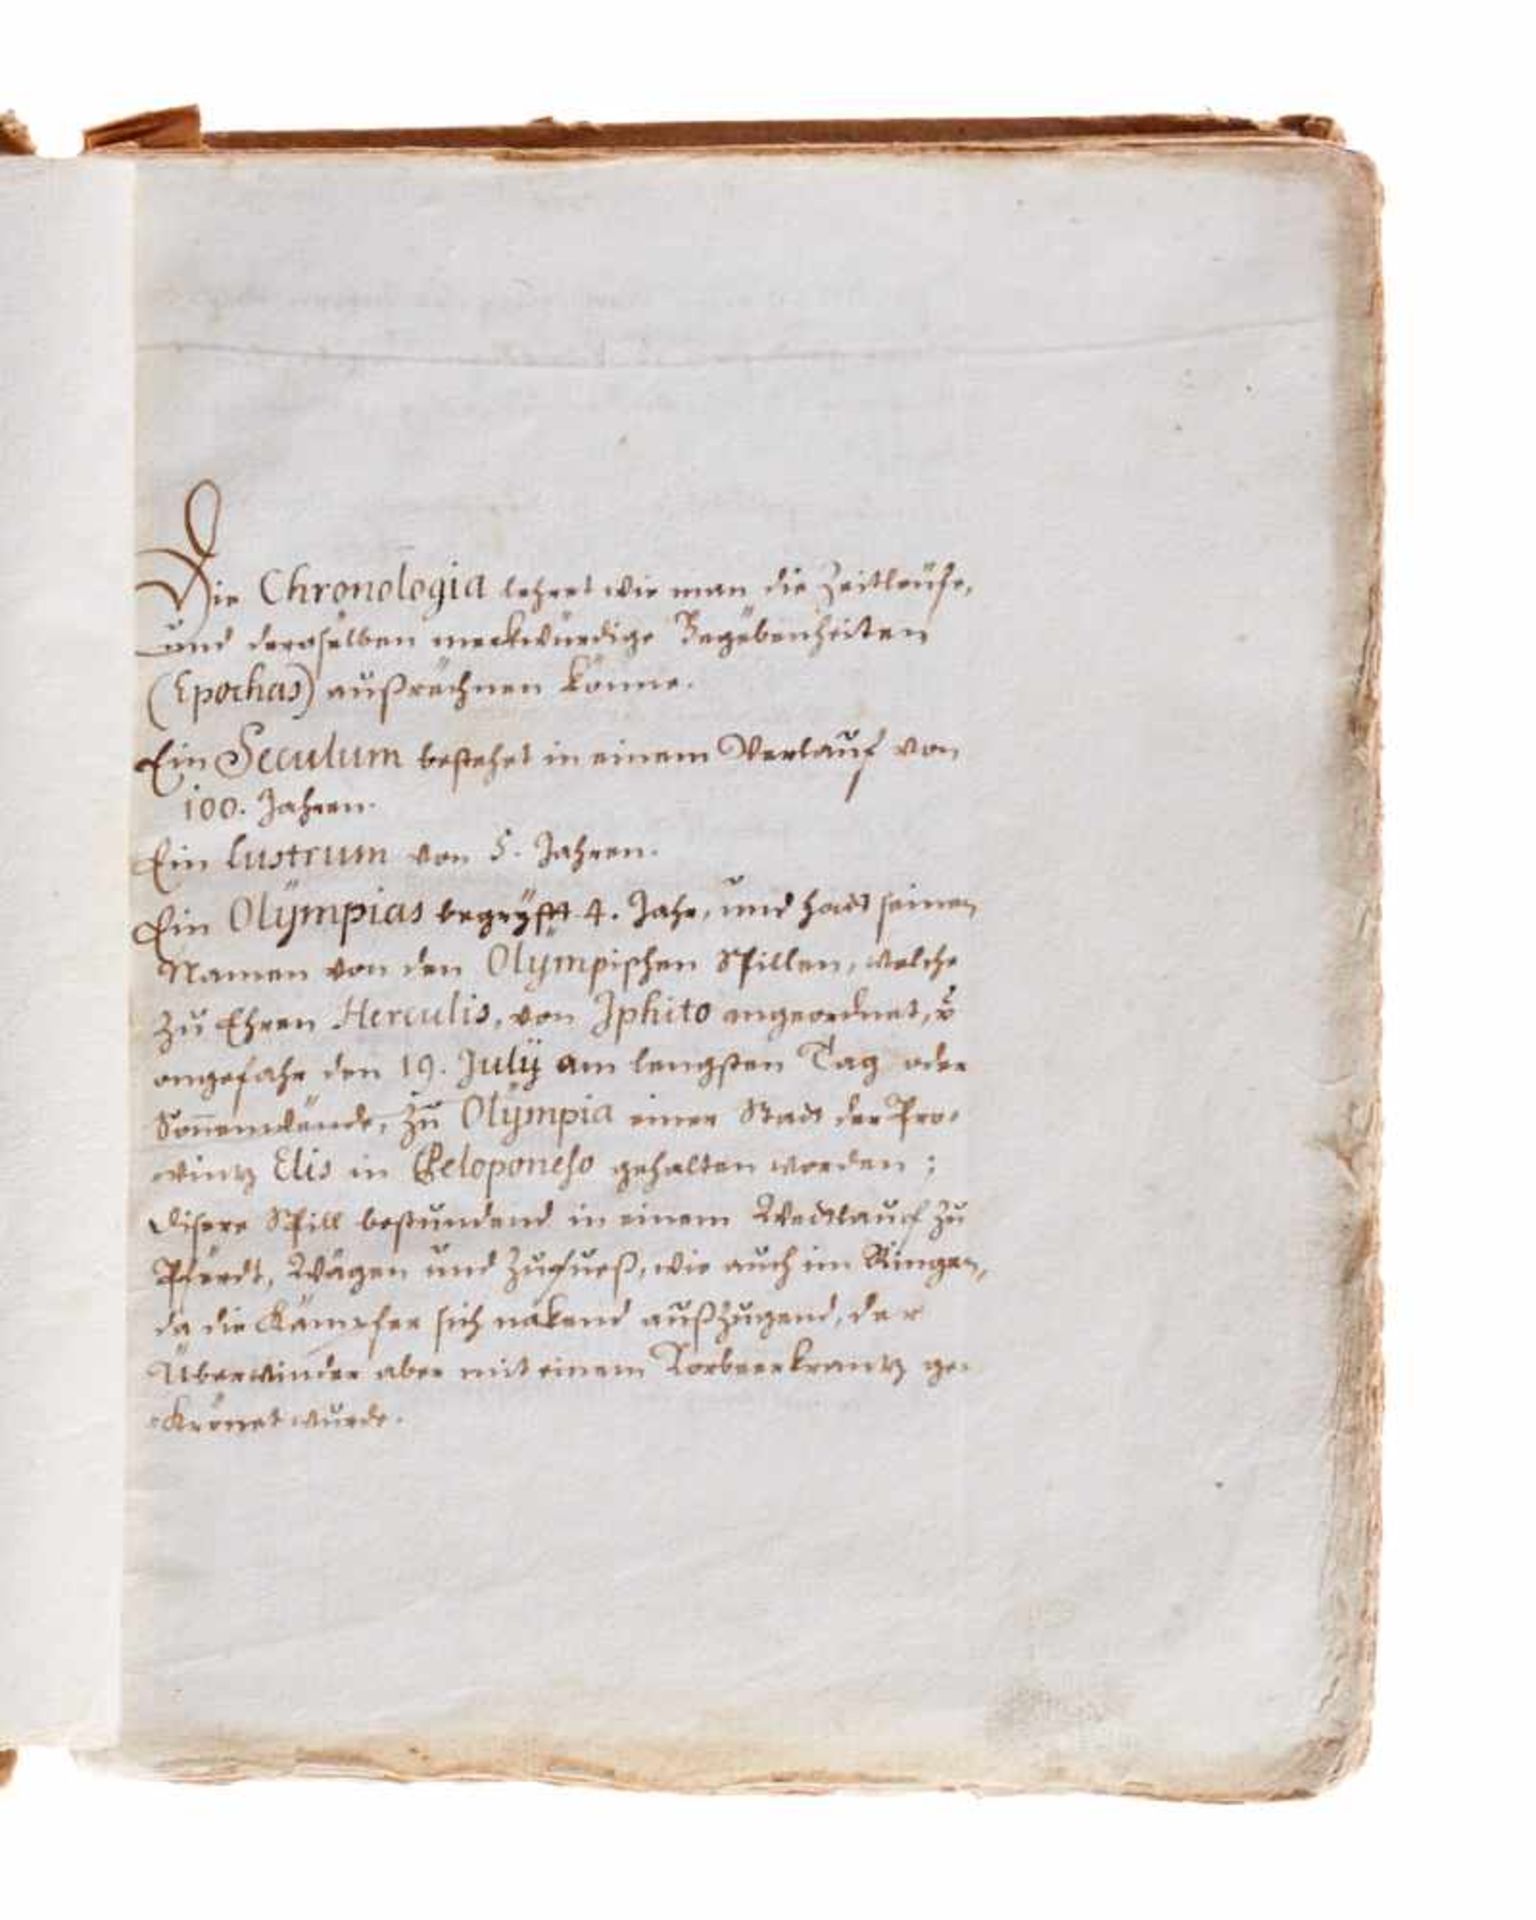 Die Chronologia lehret wie man die Zeitleüfe,
und deroselben merkwürdige Begebenheiten
(Epochas) außrechnen könne.
Ein Seculum bestehet in einem Verlauf von
100. Jahren.
Ein Lustrum von 5. Jahren.
Ein Olÿmpias begrÿfft 4. Jahr, und hadt seinen
Namen von den Olÿmpischen Spillen, welche
zu Ehren Herculis, von Iphito angeordnet, v̈
ongefahr den 19. Julÿ am lengsten Tag oder
Soñenwende, zu Olÿmpia einer Stadt der Pro-
wintz Elis in Peloponeso gehalten worden;
Disere Spill bestundend in einem Wedtlauf zu
Pferdt, Wägen und Zufueß, wie auch im Ringen,
da die Kämpfer sich nakend außzugend, der
Überwinder aber mit einem Lorbeerkrantz ge-
krönet wurde.